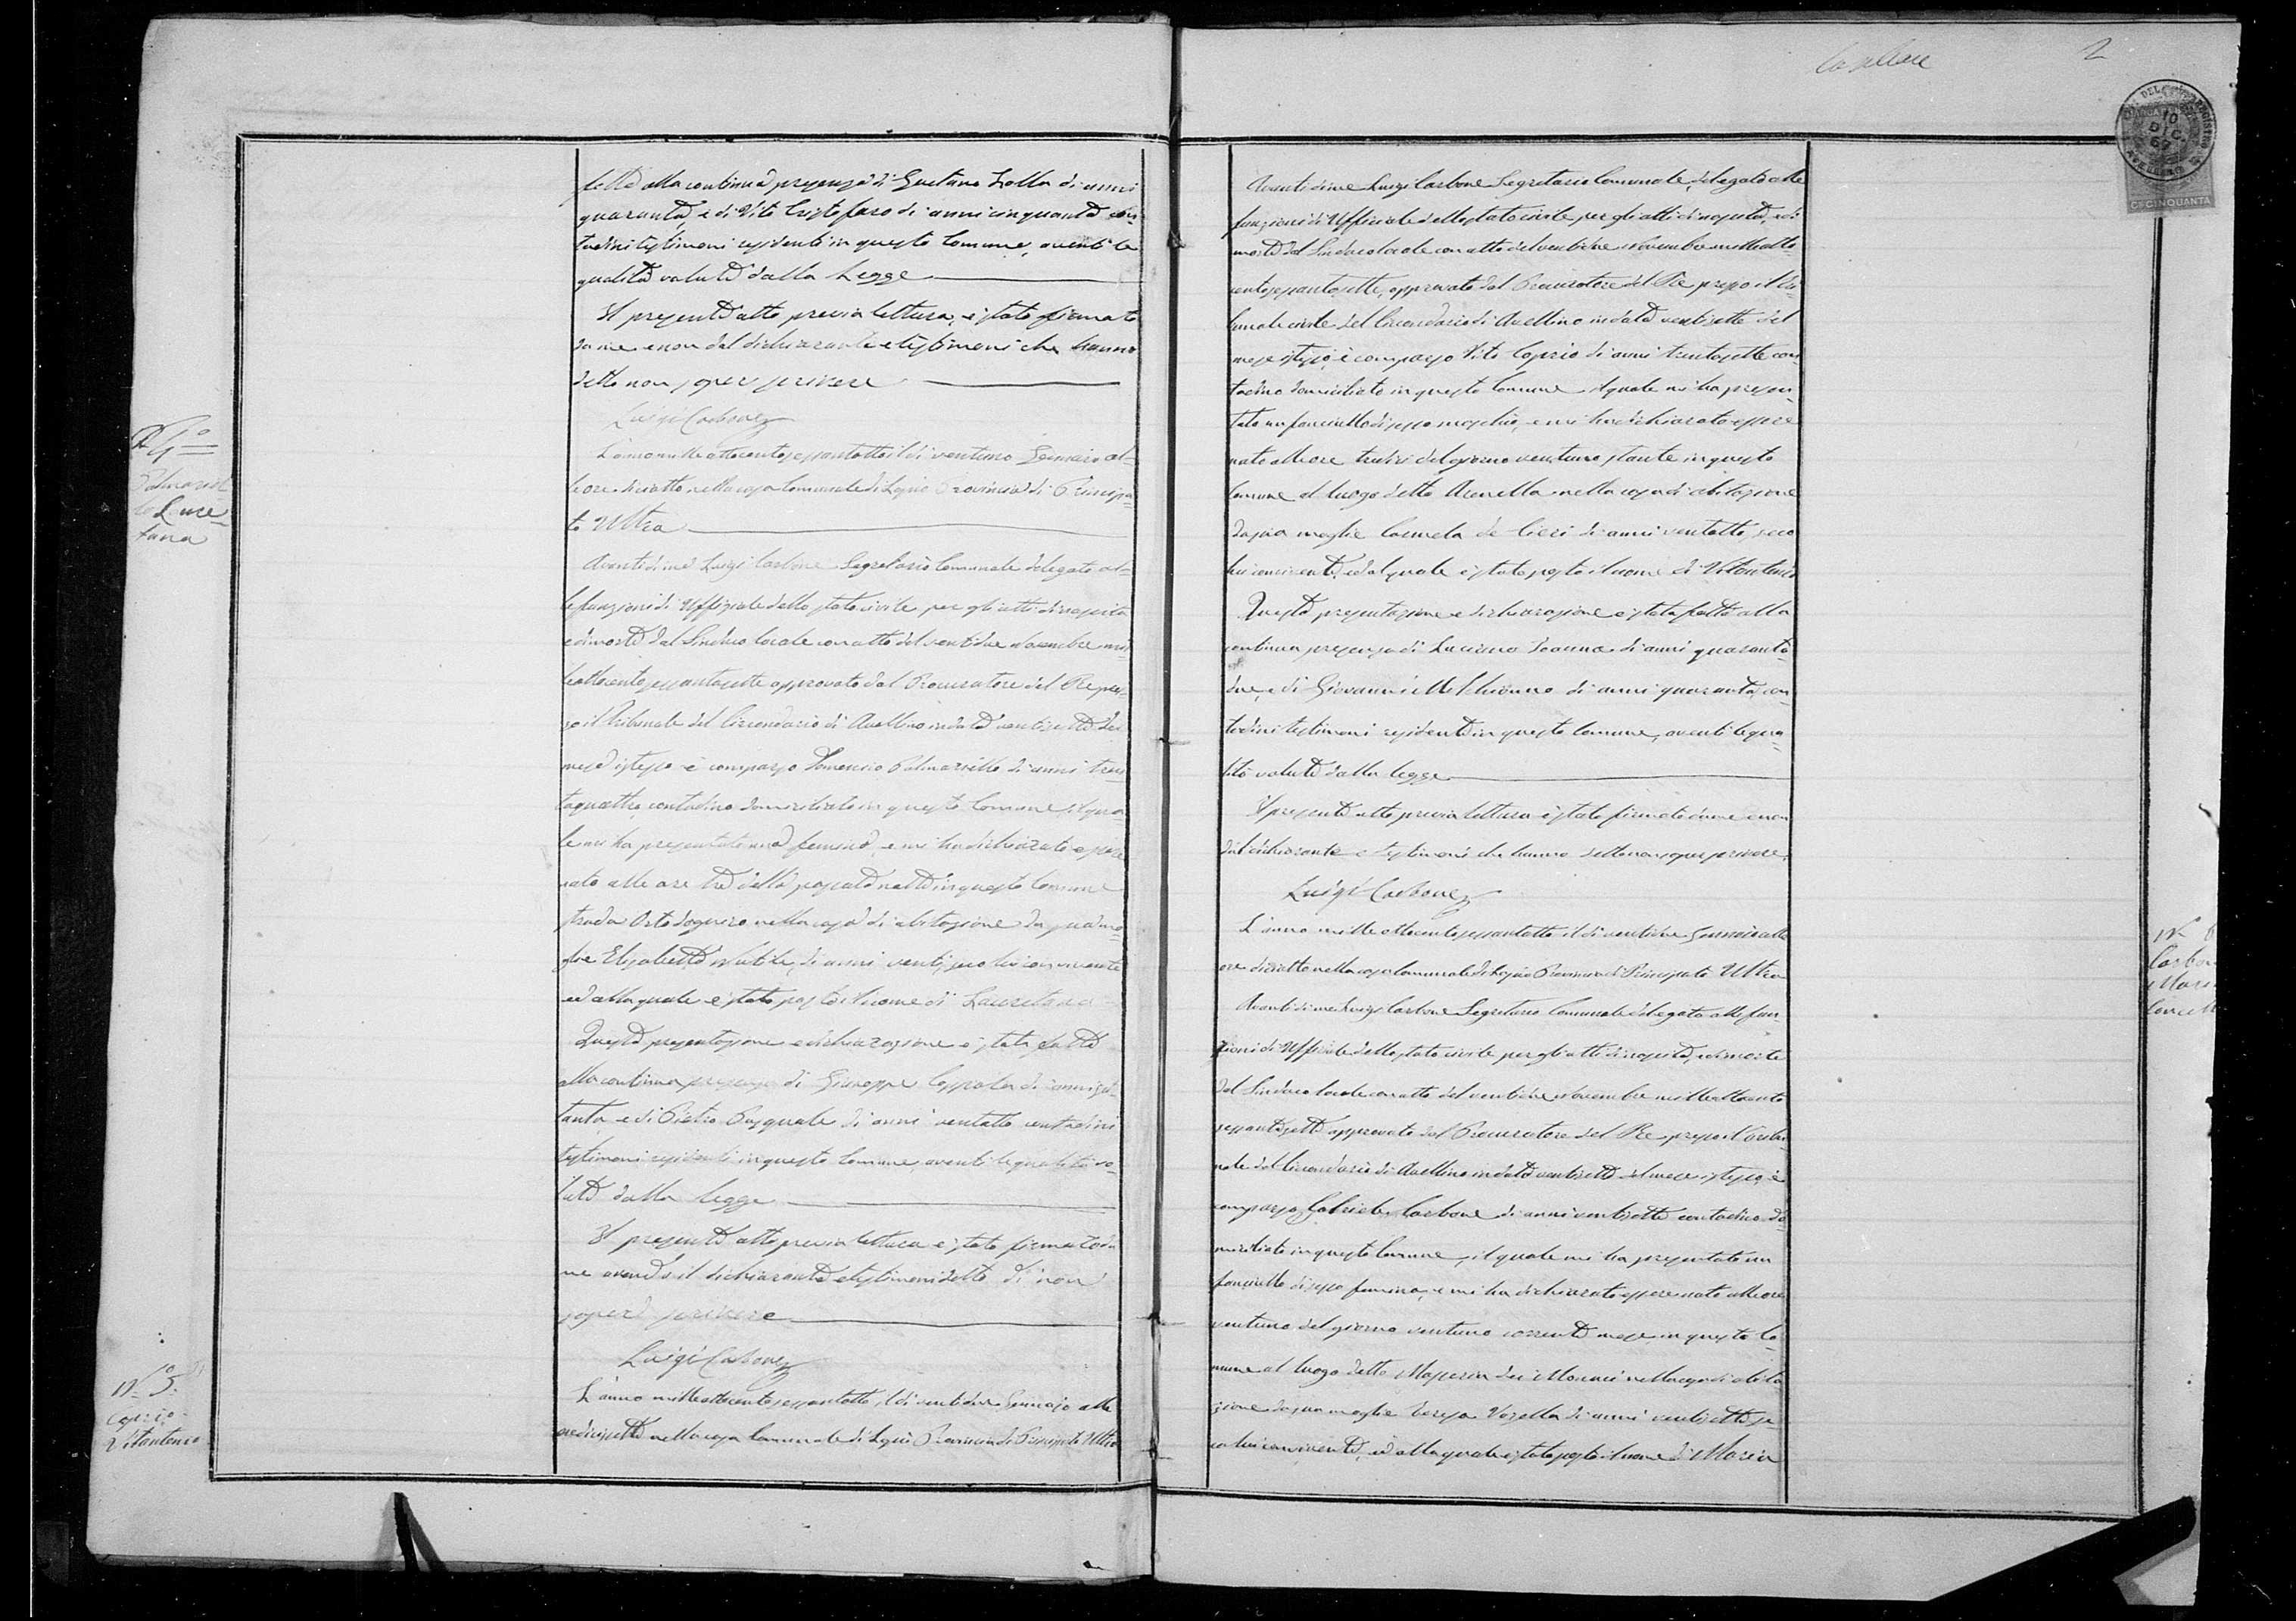 fatta alla continua presenza di Gaetano Zolla di anni
quaranta, e di Vito Cristofaro di anni cinquanta con-
tadini testimoni residenti in questo Comune, aventi le
qualità volute dalla Legge
Il presente atto previa lettura, è stato firmato
da me e non dal dichiarante e testimoni che hanno
detto non saper scrivere
Luigi Carbone
N. 4°
Laure-
tana
L'anno mille ottocentosessantotto il dì ventuno Gennaio al-
le ore diciotto nella casa Comunale di Provincia di Principa-
to Ultra
Avanti di me Luigi Carbone Segretario Comunale delegato al-
le funzioni di Uffiziale dello stato civile per gli atti di nascita
e di morte dal Sindaco locale con atto del ventidue Novembre mil-
leottocentosessantasette approvato dal Procuratore del Re pres-
so il Tribunale del Circondario di Avellino in data ventisette del
mese istesso è comparso Domenico Palmariello di anni tren-
taquattro, contadino domiciliato in questo Comune, il qua-
le mi ha presentato una femina, e mi ha dichiarato essere
nata alle ore tre della passata notte in questo Comune
strada Orto nella casa di abitazione da sua mo-
glie Elisabetta Nutile, di anni venti, seco lui convivente
ed alla quale è stato posto il nome di Lauretana
Questa presentazione e dichiarazione è stata fatta
alla continua presenza di Giuseppe di anni set-
tanta, e di Pietro Pasquale di anni ventotto contadini
testimoni residenti in questo Comune, aventi le qualità vo-
lute dalla Legge
Il presente atto previa lettura è stato firmato da
me avendo il dichiarante e testimoni detto di non
sapere scrivere
Luigi Carbone
N. 5°
Caprio
Vitantonio
L'anno mille ottocentosessantotto, il dì ventidue Gennajo alle
ore diciasette nella casa Comunale di Provincia di Principato Ultra
2
10
DIC.
67
CT. CINQUANTA
Avanti di me Luigi Carbone Segretario Comunale, delegato alle
funzioni di Uffiziale dello stato civile per gli atti di nascita, e di
morte dal Sindaco locale con atto del ventidue Novembre mille otto-
centosessantasette, approvato dal Procuratore del Re presso il Tri-
bunale civile del Circondario di Avellino in data ventisette del
mese istesso, è comparso Vito Caprio di anni trentasette con-
tadino domiciliato in questo Comune il quale mi ha presen-
tato un fanciullo di sesso maschio, e mi ha dichiarato essere
nato alle ore tredici del giorno ventuno stante in questo
Comune al luogo detto Arenella nella casa di abitazione
da sua moglie Carmela de Cicri di anni ventotto, seco
lui convivente, ed al quale è stato posto il nome di Vitantonio
Questa presentazione e dichiarazione è stata fatta alla
continua presenza di Luciano Ioanna di anni quaranta-
due, e di Giovanni Melchionno di anni quaranta, con-
tadini testimoni residenti in questo Comune, aventi le qua-
lità volute dalla legge
Il presente atto previa lettura è stato firmato da me e non
dal dichiarante e testimoni che hanno detto non saper scrivere.
Luigi Carbone
N. 6
Carbone
Maria
L'anno mille ottocentosessantotto il dì ventidue Gennaio alle
ore diciotto nella casa Comunale di Provincia di Principato Ultra
Avanti di me Luigi Carbone Segretario Comunale delegato alle fun-
zioni di Uffiziale dello stato civile per gli atti di nascita, e di morte
dal Sindaco locale con atto del ventidue Novembre mille ottocento
sessantasette approvato dal Procuratore del Re presso il Tribu-
nale del Circondario di Avellino in data ventisette del mese istesso, è
comparso Gabriele Carbone di anni ventisette contadino do-
miciliato in questo Comune, il quale mi ha presentato un
fanciullo di sesso femina, e mi ha dichiarato essere nato alle ore
ventuno del giorno ventuno corrente mese in questo Co-
mune al luogo detto Masseria dei Monaci nella casa di abita-
zione da sua moglie Teresa Vozella di anni ventisette, se-
co lui convivente, ed alla quale è stato posto il nome di Maria